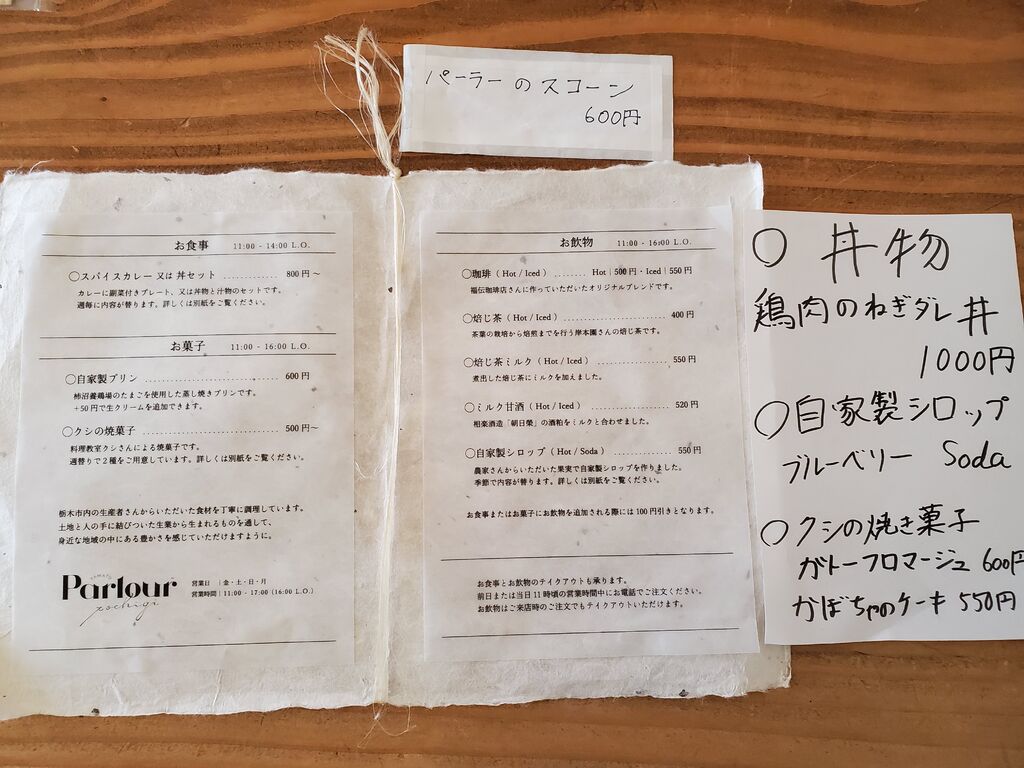 パーラーのスコーン
600円
お食事 11:00 - 14:00 L.O.
○スパイスカレー 又は 丼セット ............ 800円〜
カレーに副菜付きプレート、又は丼物と汁物のセットです。
週毎に内容が替ります。詳しくは別紙をご覧ください。
お菓子 11:00 - 16:00 L.O.
○自家製プリン ............ 600円
柿沼養鶏場のたまごを使用した蒸し焼きプリンです。
+50円で生クリームを追加できます。
○クシの焼菓子 ............ 500円〜
料理教室クシさんによる焼菓子です。
週替りで2種をご用意しています。詳しくは別紙をご覧ください。
栃木市内の生産者さんからいただいた食材を丁寧に調理しています。
土地と人の手に結びついた生業から生まれるものを通して、
身近な地域の中にある豊かさを感じていただけますように。
Parlour
tochigi
営業日 |金・土・日・月
営業時間|11:00 - 17:00 (16:00 L.O.)
お飲物 11:00 - 16:00 L.O.
○珈琲 ( Hot / Iced ) ........ Hot | 500円・Iced | 550円
福伝珈琲店さんに作っていただいたオリジナルブレンドです。
○焙じ茶 ( Hot / Iced ) ............ 400円
茶葉の栽培から焙煎までを行う岸本園さんの焙じ茶です。
○焙じ茶ミルク ( Hot / Iced ) ............ 550円
煮出した焙じ茶にミルクを加えました。
○ミルク甘酒 ( Hot / Iced ) ............ 520円
相楽酒造「朝日榮」の酒粕をミルクと合わせました。
○自家製シロップ ( Hot / Soda ) ............ 550円
農家さんからいただいた果実で自家製シロップを作りました。
季節で内容が替ります。詳しくは別紙をご覧ください。
お食事またはお菓子にお飲物を追加される際には100円引きとなります。
お食事とお飲物のテイクアウトも承ります。
前日または当日11時頃の営業時間中にお電話でご注文ください。
お飲物はご来店時のご注文でもテイクアウトいただけます。
○ 丼物
鶏肉のねぎダレ丼
1000円
○自家製シロップ
ブルーベリー Soda
○クシの焼き菓子
ガトーフロマージュ 600円
かぼちゃのケーキ 550円